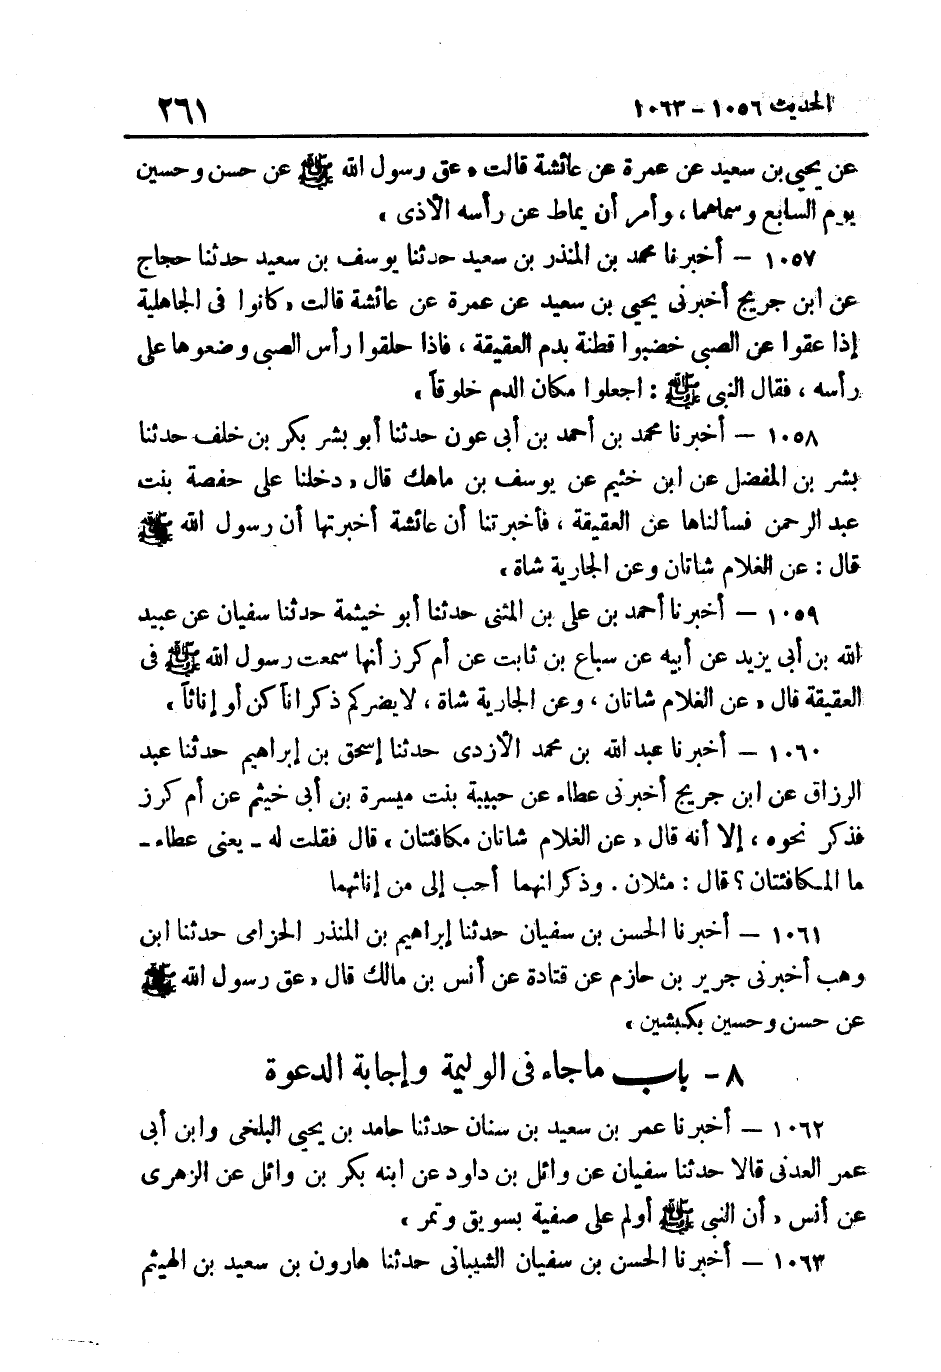 الحديث ١٠٥٦ - ١٠٦٣ ٢٦١
عن يحيى بن سعيد عن عمرة عن عائشة قالت «عق رسول الله ﷺ عن حسن وحسين
يوم السابع وسماهما، وأمر أن يماط عن رأسه الأذى»
١٠٥٧ — أخبرنا محمد بن المنذر بن سعيد حدثنا يوسف بن سعيد حدثنا حجاج
عن ابن جريج أخبرنى يحيى بن سعيد عن عمرة عن عائشة قالت «كانوا فى الجاهلية
إذا عقوا عن الصبى خضبوا قطنة بدم العقيقة، فاذا حلقوا رأس الصبى وضعوها على
رأسه، فقال النبى ﷺ: اجعلوا مكان الدم خلوقاً»
١٠٥٨ — أخبرنا محمد بن أحمد بن أبى عون حدثنا أبو بشر بكر بن خلف حدثنا
بشر بن المفضل عن ابن خثيم عن يوسف بن ماهك قال «دخلنا على حفصة بنت
عبد الرحمن فسألناها عن العقيقة، فأخبرتنا أن عائشة أخبرتها أن رسول الله ﷺ
قال: عن الغلام شاتان وعن الجارية شاة»
١٠٥٩ — أخبرنا أحمد بن على بن المثنى حدثنا أبو خيثمة حدثنا سفيان عن عبيد
الله بن أبى يزيد عن أبيه عن سباع بن ثابت عن أم كرز أنها سمعت رسول الله ﷺ فى
العقيقة قال «عن الغلام شاتان، وعن الجارية شاة، لايضركم ذكراناً كن أو إناثاً»
١٠٦٠ — أخبرنا عبد الله بن محمد الأزدى حدثنا إسحق بن إبراهيم حدثنا عبد
الرزاق عن ابن جريج أخبرنى عطاء عن حبيبة بنت ميسرة بن أبى خيثم عن أم كرز
فذكر نحوه، إلا أنه قال «عن الغلام شاتان مكافئتان» قال فقلت له - يعنى عطاء -
ما المكافئتان؟ قال: مثلان. وذكرانهما أحب إلى من إناثهما
١٠٦١ — أخبرنا الحسن بن سفيان حدثنا إبراهيم بن المنذر الحزامى حدثنا ابن
وهب أخبرنى جرير بن حازم عن قتادة عن أنس بن مالك قال «عق رسول الله ﷺ
عن حسن وحسين بكبشين»
٨ - باب ماجاء فى الوليمة وإجابة الدعوة
١٠٦٢ — أخبرنا عمر بن سعيد بن سنان حدثنا حامد بن يحيى البلخى وابن أبى
عمر العدنى قالا حدثنا سفيان عن وائل بن داود عن ابنه بكر بن وائل عن الزهرى
عن أنس «أن النبى ﷺ أولم على صفية بسويق وتمر»
١٠٦٣ — أخبرنا الحسن بن سفيان الشيبانى حدثنا هارون بن سعيد بن الهيثم